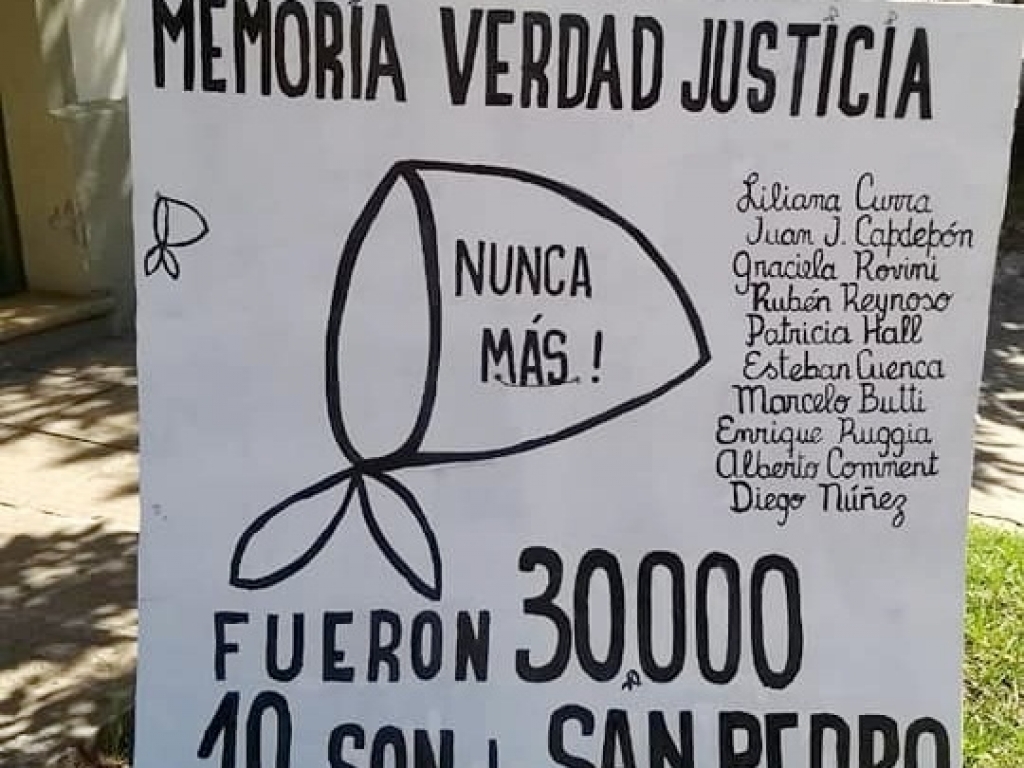 MEMORIA VERDAD JUSTICIA
NUNCA
MÁS!
Liliana Curra
Juan J. Capdepón
Graciela Rovini
Rubén Reynoso
Patricia Hall
Esteban Cuenca
Marcelo Butti
Enrique Ruggia
Alberto Comment
Diego Núñez
FUERON 30.000
10 SON SAN PEDRO